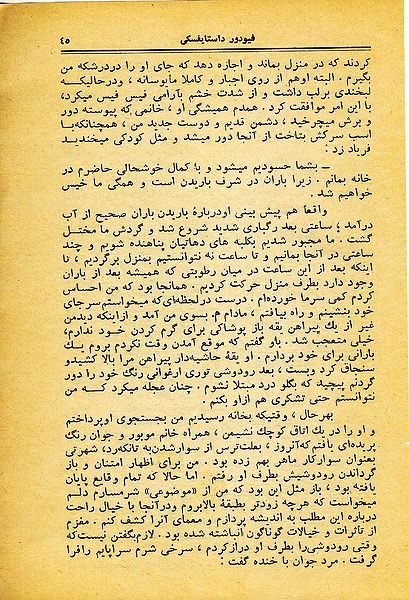 فیودور داستایفسکی ۴۵
کردند که در منزل بماند و اجازه دهد که جای او را دردرشکه من
بگیرم . البته اوهم از روی اجبار و کاملا مایوسانه ، ودرحالیکه
لبخندی برلب داشت و از شدت خشم باآرامی فیس فیس میکرد،
با این امر موافقت کرد . همدم همیشگی او ، خانمی که پیوسته دور
و برش میچرخید ، دشمن قدیم و دوست جدید من ، همچنانکه با
اسب سرکش بتاخت از آنجا دور میشد و مثل کودکی میخندید
فریاد زد :
— بشما حسودیم میشود و با کمال خوشحالی حاضرم در
خانه بمانم . زیرا باران در شرف باریدن است و همگی ما خیس
خواهیم شد .
واقعاً هم پیش بینی اودربارهٔ باریدن باران صحیح از آب
درآمد ؛ ساعتی بعد رگباری شدید شروع شد و گردش ما مختل
گشت . ما مجبور شدیم بکلبه های دهاتیان پناهنده شویم و چند
ساعتی در آنجا بمانیم و تا ساعت نه نتوانستیم بمنزل برگردیم ، تا
اینکه بعد از این ساعت در میان رطوبتی که همیشه بعد از باران
وجود دارد بطرف منزل حرکت کردیم . همانجا بود که من احساس
کردم کمی سرما خورده‌ام . درست درلحظه‌ای که میخواستم سرجای
خود بنشینم و راه بیافتم ، مادام م. بسوی من آمد و ازاینکه دیدمن
غیر از یک پیراهن یقه باز پوشاکی برای گرم کردن خود ندارم،
خیلی متعجب شد . باو گفتم که موقع آمدن وقت نکردم بروم یک
بارانی برای خود بردارم . او یقهٔ حاشیه‌دار پیرهن مرا بالا کشیدو
سنجاق کرد وبست ، بعد رودوشی توری ارغوانی رنگ خود را دور
گردنم پیچید که بگلو درد مبتلا نشوم . چنان عجله میکرد کــه من
نتوانستم حتی تشکری هم ازاو بکنم .
بهرحال ، وقتیکه بخانه رسیدیم من بجستجوی اوپرداختم
و او را در یك اتاق كوچك نشیمن ، همراه خانم موبور و جوان رنگ
پریده‌ای یافتم‌که‌آنروز ، بعلت‌ترس از سوارشدن‌به تانکه‌رد، شهرتی
بعنوان سوارکار ماهر بهم زده بود . من برای اظهار امتنان و باز
گرداندن رودوشیش بطرف او رفتم . اما حالا که تمام وقایع پایان
یافته بود ، باز مثل این بود که من از «موضوعی» شرمسارم دلم
میخواست که هرچه زودتر بطبقهٔ بالابروم ودرآنجا با خیال راحت
درباره این مطلب به اندیشه پردازم و معمای آنرا کشف کنم . مغزم
از تاثرات و خیالات گوناگون انباشته شده بود . لازم‌بگفتن نیست‌که
وقتی رودوشی‌را بطرف او درازکردم ، سرخی شرم سراپایم رافرا
گرفت . مرد جوان با خنده گفت :